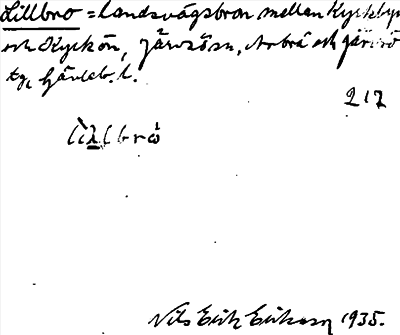 Lillbro = Landsvägsbron mellan Kyrkbyn
och Kyrkön, Järvsö sn, Arbrå och Järvsö
tg, Gävleb. l.
217
Nils Erik Eriksson 1935.